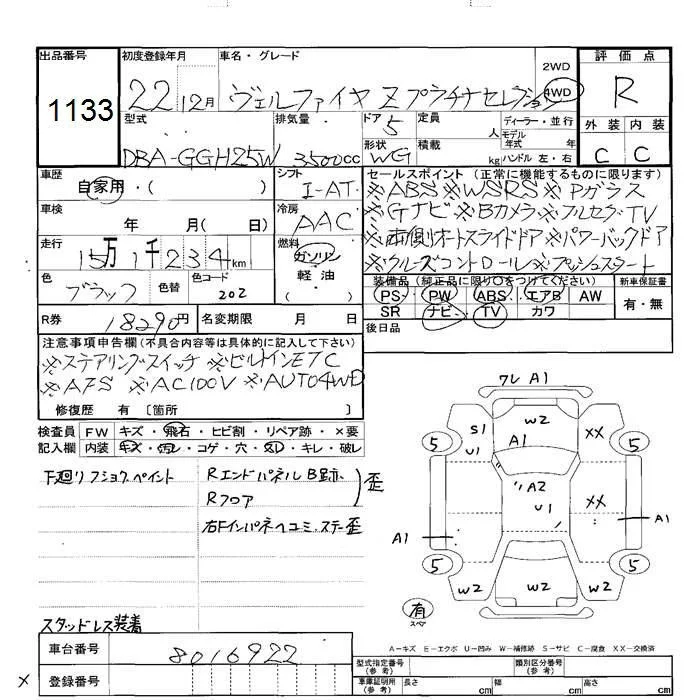 出品番号 初度登録年月 車名・グレード 2WD 評価点
1133 22 12月 ヴェルファイヤ Z プラチナセレクション 4WD R
型式 排気量 ドア 5 定員 人 ディーラー・並行 外装 内装
モデル年式 年
DBA-GGH25W 3500cc 形状 WG 積載 kg ハンドル 左・右 C C
車歴 シフト セールスポイント(正常に機能するものに限ります)
自家用・( ) I-AT ※ABS※WSRS※Pガラス
車検 年 月( 日) 冷房 AAC ※Gナビ※Bカメラ※フルセグTV
※両側オートスライドドア※パワーバックドア
走行 15万1千234km 燃料 ガソリン ※クルーズコントロール※プッシュスタート
軽・油
( )
色 ブラック 色替 色コード 202 装備品(純正品に限り○をつけてください) 新車保証書
PS PW ABS エアB AW 有・無
SR ナビ TV カワ
R券 18290円 名変期限 月 日 後日品
注意事項申告欄(不具合内容等は具体的に記入して下さい)
※ステアリングスイッチ ※ビルトインETC
※AFS ※AC100V ※AUTO4WD
修復歴 有 〔箇所 〕
検査員 FW キズ・飛石・ヒビ割・リペア跡・×要
記入欄 内装 キズ・汚レ・コゲ・穴・スレ・キレ・破レ
下廻リフショクペイント Rエンドパネル B跡
Rフロア 歪
右Fインパネヘコミ、ステー歪
スタッドレス装着
ワレ A1
W2
S1
U1
A1
XX
5
5
A2
U1
XX
A1
A1
5
5
W2
W2
W2
有
スペア
A-キズ E-エクボ U-凹み W-補修跡 S-サビ C-腐食 XX-交換済
車台番号 8016922
型式指定番号(参考) 類別区分番号(参考)
× 登録番号
車庫証明用(参考) 長さ cm 幅 cm 高さ cm